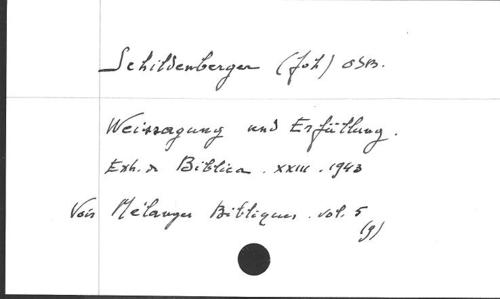 Schildenberger (Joh) OSB.
Weissagung und Erfüllung.
Exh. de Biblica. XXIII. 1943
Voir Mélanges Bibliques. vol. 5
(9)